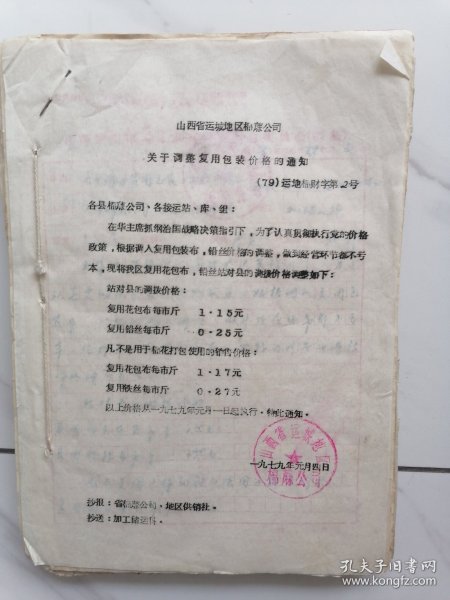 山西省运城地区棉麻公司
关于调整复用包装价格的通知
(79)运地棉财字第2号
各县棉麻公司、各接运站、库、组:
在华主席抓纲治国战略决策指引下,为了认真贯彻执行党的价格
政策,根据调入复用包装布,铅丝价格的调整,做到经营环节都不亏
本,现将我区复用花包布,铅丝站对县的调拨价格调整如下:
站对县的调拨价格:
复用花包布每市斤 1·15元
复用铅丝每市斤 0·25元
凡不是用于棉花打包使用的销售价格:
复用花包布每市斤 1·17元
复用铁丝每市斤 0·27元
以上价格从一九七九年元月一日起执行·特此通知·
山西省运城地区
棉麻公司
一九七九年元月四日
抄报:省棉麻公司·地区供销社·
抄送:加工储运科·
孔夫子旧书网
www.kongfz.com